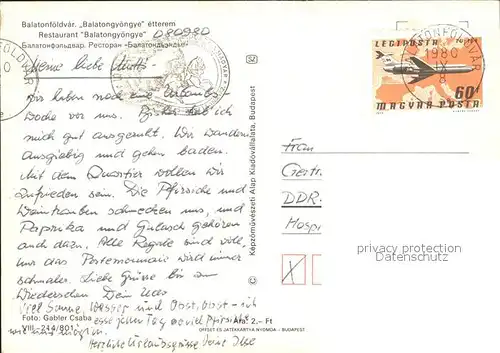 Balatonföldvár. „Balatongyöngye" étterem
Restaurant "Balatongyöngye" 080980
Балатонфольдвар. Ресторан «Балатондьёндье»
Meine liebe Mutti -
wir haben noch eine Urlaubs-
woche vor uns. Bisher hab ich
mich gut ausgeruht. Wir wandern
ausgiebig und gehen baden.
Mit dem Quartier wollen wir
zufrieden sein. Die Pfirsiche und
Weintrauben schmecken uns, und
Paprika und Gulasch gehören
auch dazu. Alle Regale sind voll,
nur das Portemonnaie wird immer
schmaler. Liebe Grüsse bis zum
Wiedersehen Dein
Viel Sonne, Wasser und Obst, Obst - ich
esse jeden Tag so viel Pfirsiche
wie
Herzliche Urlaubsgrüsse Deine Ilse
Foto: Gabler Csaba
VIII-244/801
Ára: 2,- Ft
OFFSET ÉS JÁTÉKKÁRTYA NYOMDA - BUDAPEST
Képzőművészeti Alap Kiadóvállalata, Budapest
LÉGIPOSTA
60 f
MAGYAR POSTA
BALATONFÖLDVÁR
1980
IX
8
Frau
DDR.
Hospi
privacy protection
Datenschutz